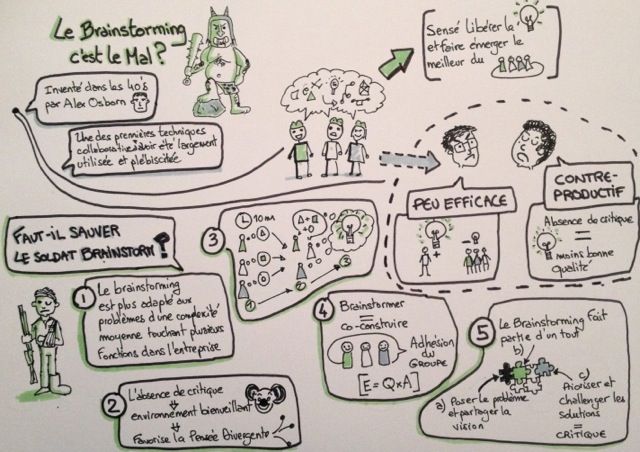 Le Brainstorming
c'est le Mal?
Inventé dans les 40's
par Alex Osborn
Une des premières techniques
collaboratives à avoir été largement
utilisée et plébiscitée
Sensé Libérer la
et faire émerger le
meilleur du
PEU EFFICACE
+
CONTRE-
PRODUCTIF
Absence de critique
=
moins bonne
qualité
FAUT-IL SAUVER
LE SOLDAT BRAINSTORM?
1
Le brainstorming
est plus adapté aux
problèmes d'une complexité
moyenne touchant plusieurs
fonctions dans l'entreprise
2
L'absence de critique
environnement bienveillant
Favorise la Pensée Divergente
3
10 mn
1
2
3
4
Brainstormer
=
co-construire
Adhésion
du
GROUPE
[E = Q x A]
5
Le Brainstorming fait
partie d'un tout
b)
a) Poser le problème
et partager la
vision
c)
Prioriser et
challenger les
solutions
=
CRITIQUE